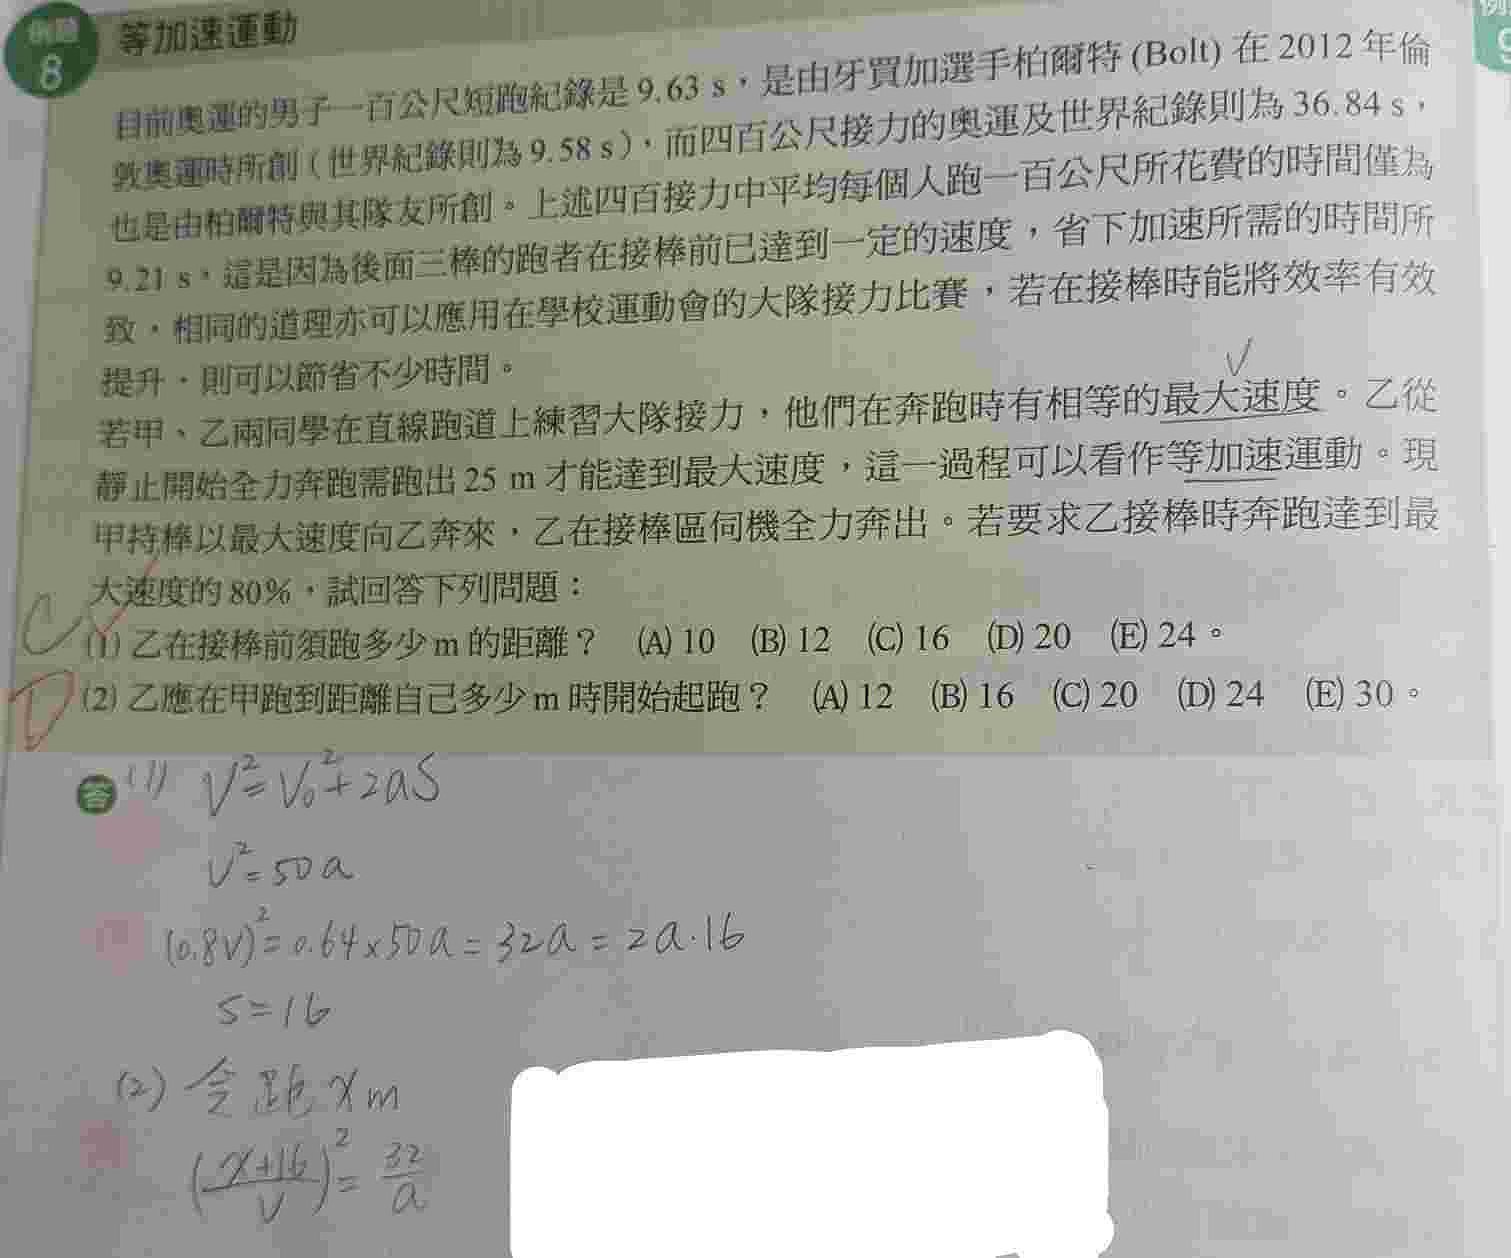 例題 等加速運動
8
目前奧運的男子一百公尺短跑紀錄是 9.63 s，是由牙買加選手柏爾特 (Bolt) 在 2012 年倫
敦奧運時所創 ( 世界紀錄則為 9.58 s )，而四百公尺接力的奧運及世界紀錄則為 36.84 s，
也是由柏爾特與其隊友所創。上述四百接力中平均每個人跑一百公尺所花費的時間僅為
9.21 s，這是因為後面三棒的跑者在接棒前已達到一定的速度，省下加速所需的時間所
致，相同的道理亦可以應用在學校運動會的大隊接力比賽，若在接棒時能將效率有效
提升，則可以節省不少時間。
V
若甲、乙兩同學在直線跑道上練習大隊接力，他們在奔跑時有相等的最大速度。乙從
靜止開始全力奔跑需跑出 25 m 才能達到最大速度，這一過程可以看作等加速運動。現
甲持棒以最大速度向乙奔來，乙在接棒區伺機全力奔出。若要求乙接棒時奔跑達到最
大速度的 80%，試回答下列問題：
C (1) 乙在接棒前須跑多少 m 的距離？ (A) 10 (B) 12 (C) 16 (D) 20 (E) 24。
D (2) 乙應在甲跑到距離自己多少 m 時開始起跑？ (A) 12 (B) 16 (C) 20 (D) 24 (E) 30。
答 (1) V²=V₀²+2aS
V²=50a
(0.8V)²=0.64×50a=32a=2a·16
S=16
(2) 令距 xm
(x+16/V)²=32/a